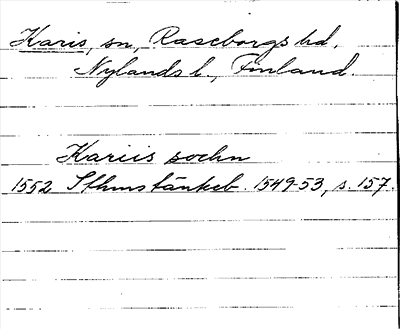 Karis, sn, Raseborgs hd,
Nylands l., Finland.
Kariis sochn
1552 Sthmstänkeb. 1549-53, s. 157.